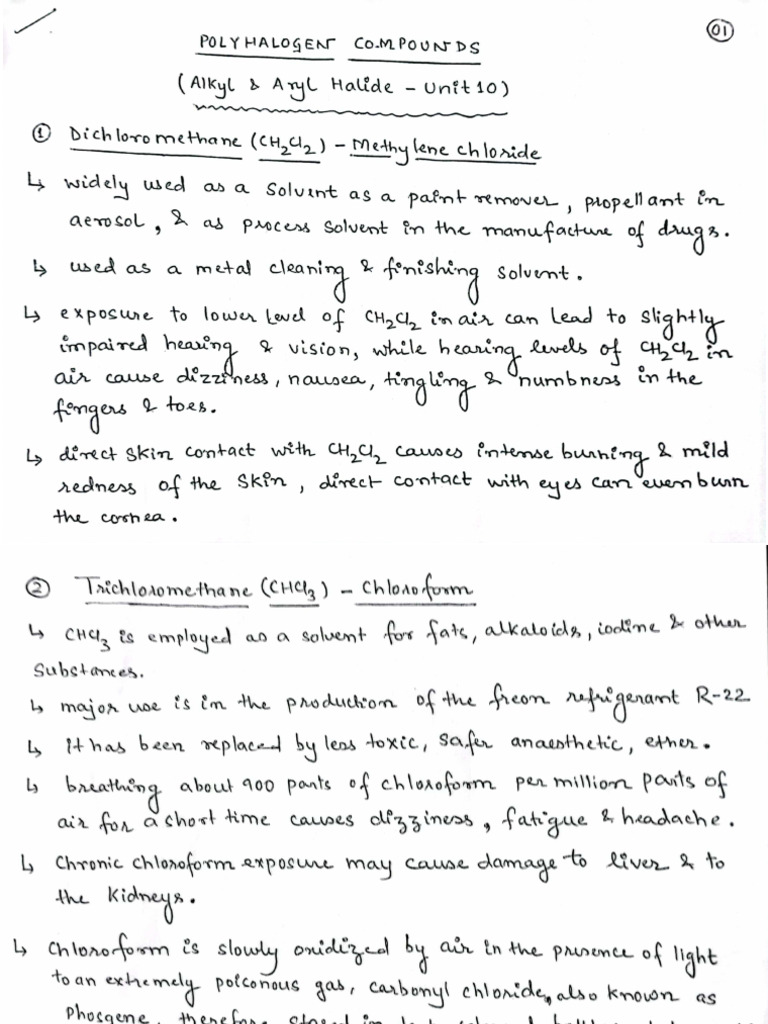 01
POLYHALOGEN COMPOUNDS
(Alkyl & Aryl Halide - Unit 10)
① Dichloromethane (CH2Cl2) - Methylene chloride
↳ widely used as a solvent as a paint remover, propellant in
aerosol, & as process solvent in the manufacture of drugs.
↳ used as a metal cleaning & finishing solvent.
↳ exposure to lower level of CH2Cl2 in air can lead to slightly
impaired hearing & vision, while hearing levels of CH2Cl2 in
air cause dizziness, nausea, tingling & numbness in the
fingers & toes.
↳ direct skin contact with CH2Cl2 causes intense burning & mild
redness of the skin, direct contact with eyes can even burn
the cornea.
② Trichloromethane (CHCl3) - Chloroform
↳ CHCl3 is employed as a solvent for fats, alkaloids, iodine & other
substances.
↳ major use is in the production of the freon refrigerant R-22
↳ it has been replaced by less toxic, safer anaesthetic, ether.
↳ breathing about 900 parts of chloroform per million parts of
air for a short time causes dizziness, fatigue & headache.
↳ Chronic chloroform exposure may cause damage to liver & to
the kidneys.
↳ Chloroform is slowly oxidized by air in the presence of light
to an extremely poisonous gas, carbonyl chloride, also known as
Phosgene, therefore stored in